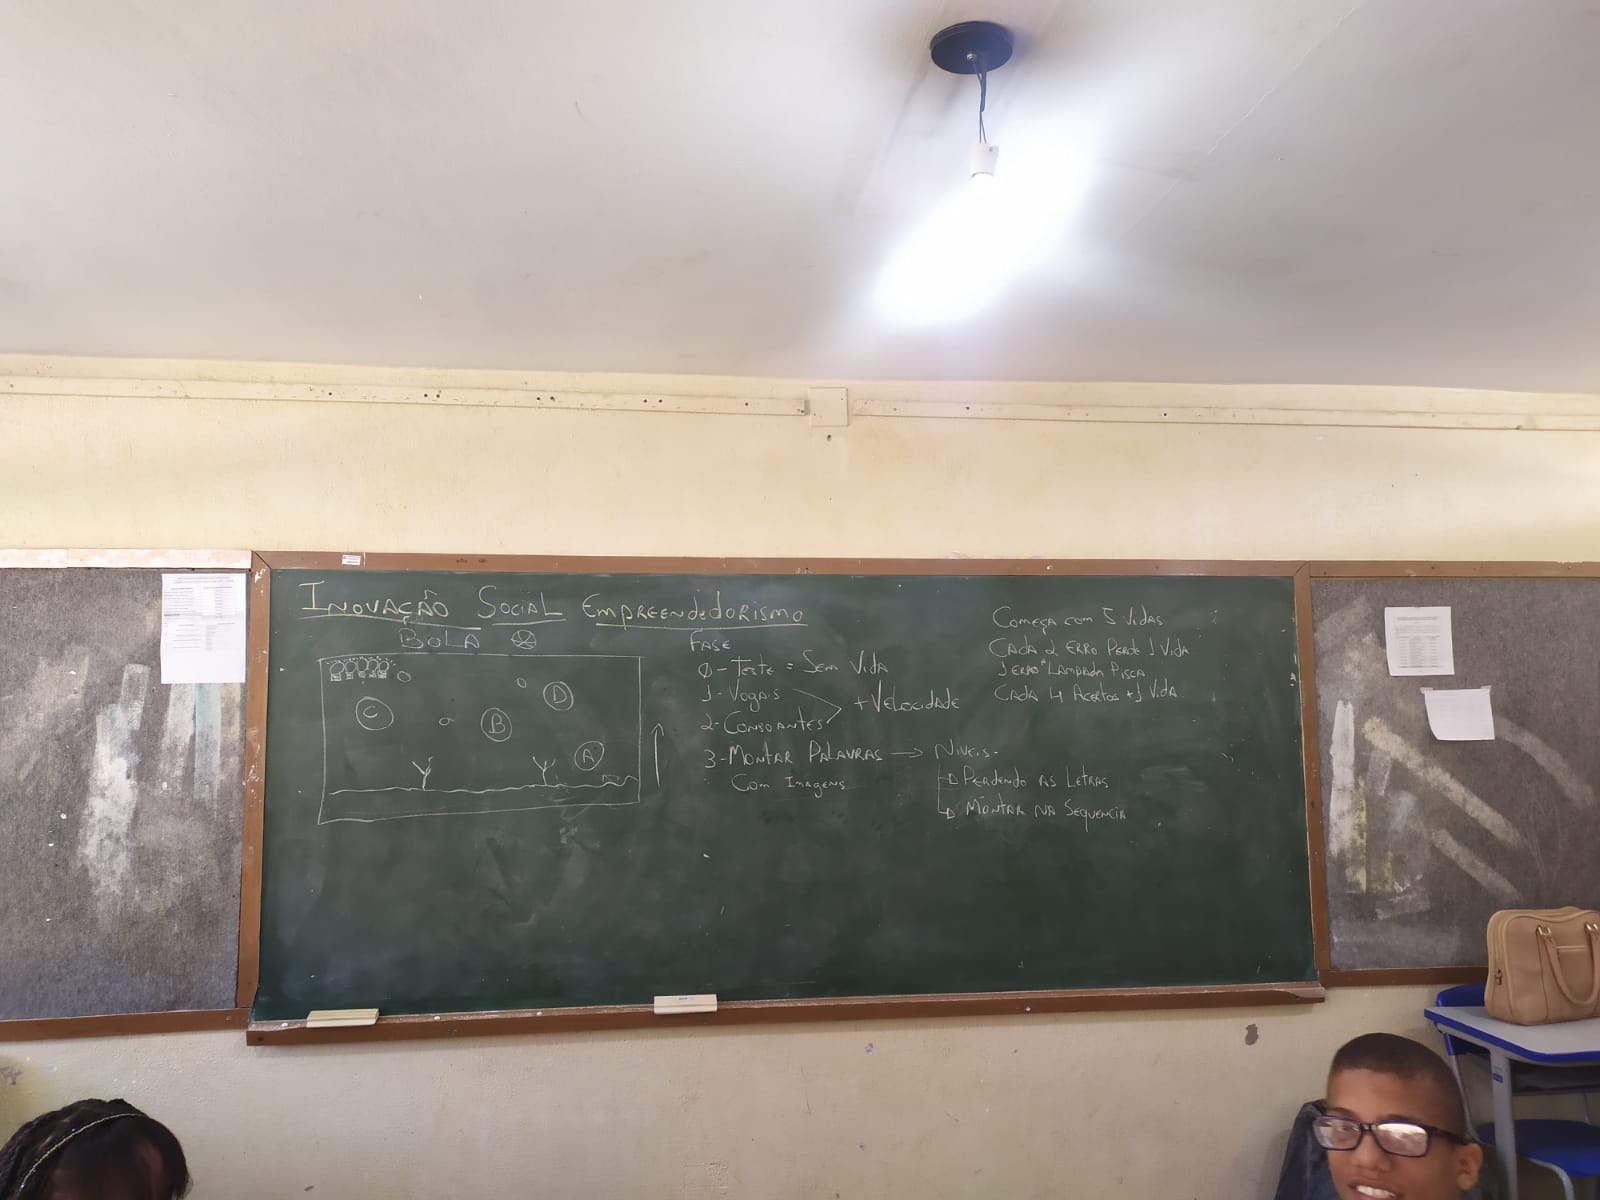 Inovação Social Empreendedorismo
Bola
C
B
D
A
Fase
0 - Teste = Sem Vida
1 - Vogais
2 - Consoantes
+ Velocidade
3 - Montar Palavras → Niveis
Com Imagens
Perdendo as Letras
Montar na Sequencia
Começa com 5 Vidas
Cada 2 Erro Perde 1 Vida
1 Erro A Lampada Pisca
Cada 4 Acertos +1 Vida